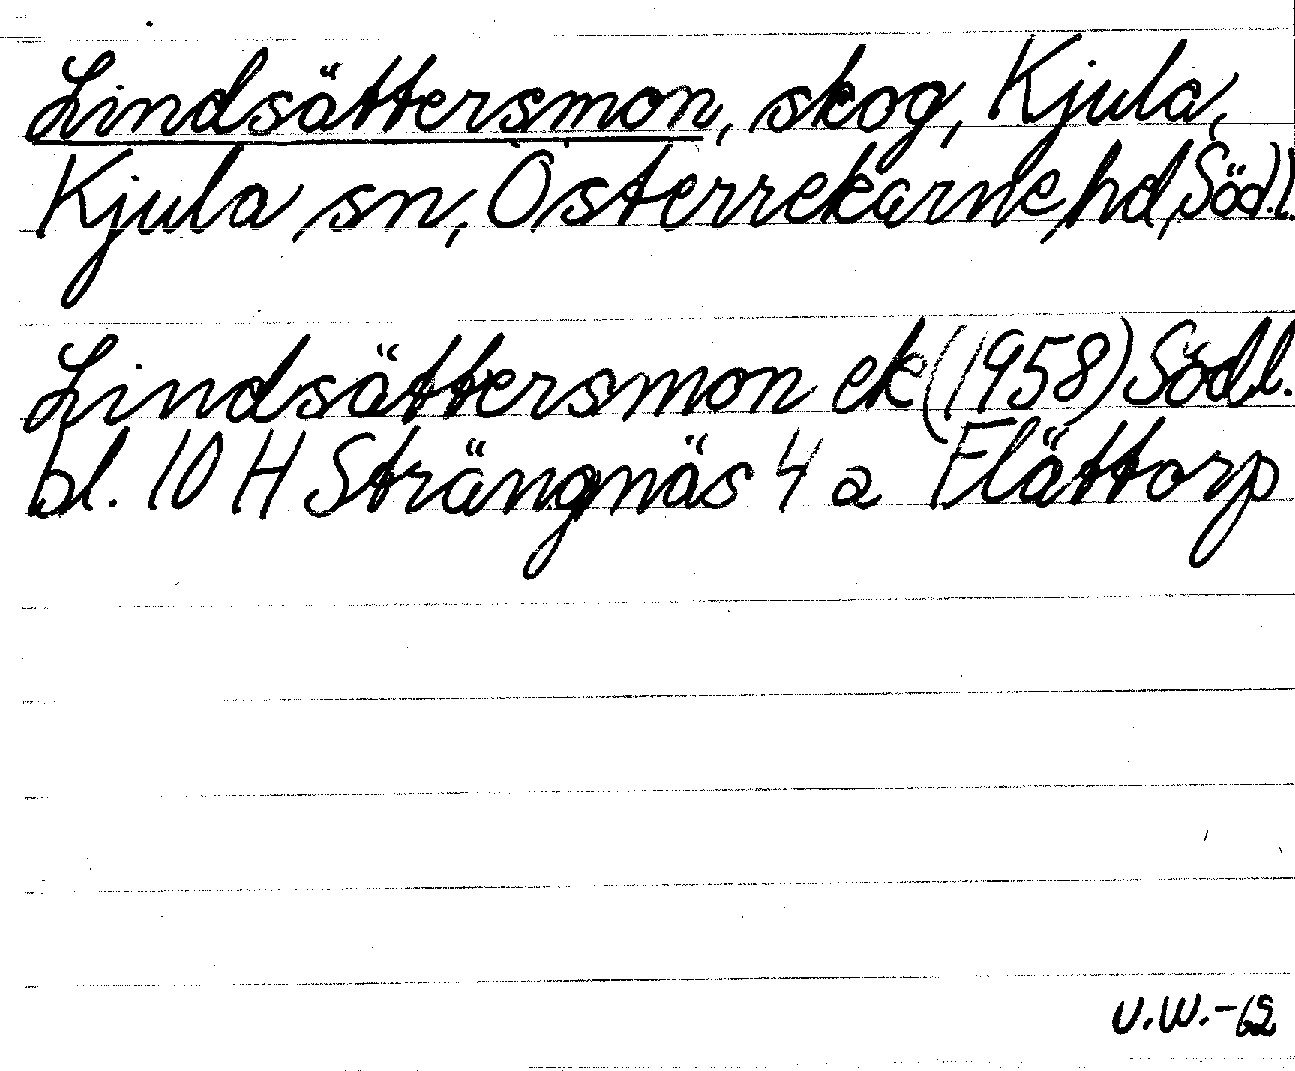 Lindsättersmon, skog, Kjula,
Kjula sn, Österrekarne hd, Södl.
Lindsättersmon ek (1958) Södl.
bl. 10 H Strängnäs 4 a Flättorp
U.W.-62